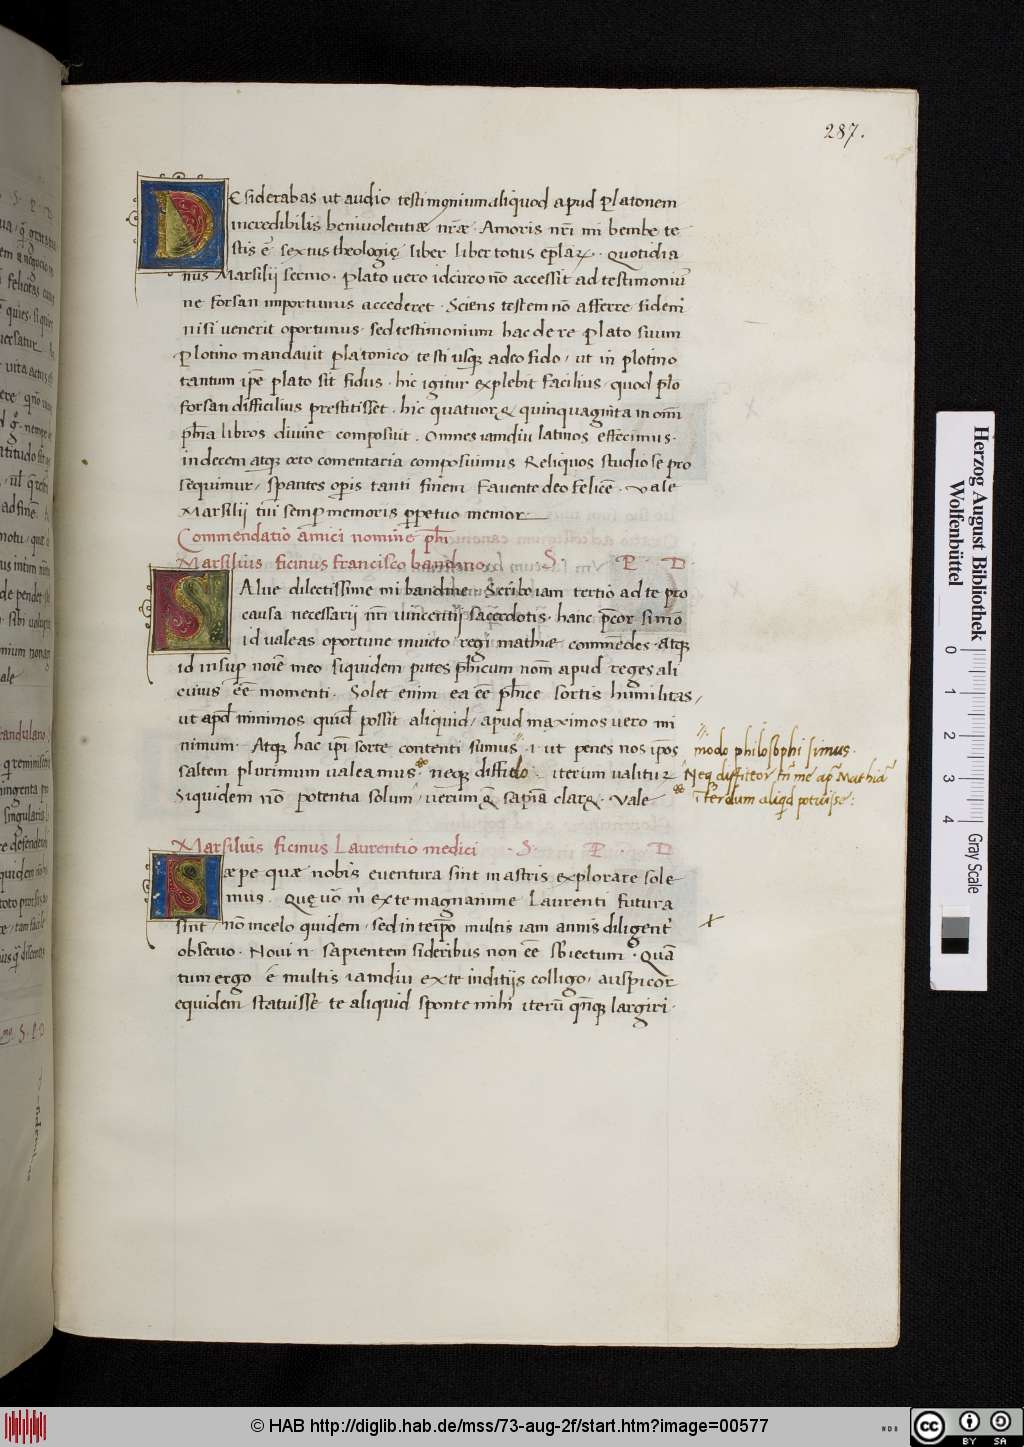 287.
DEsiderabas ut audio testimonium aliquod apud platonem
incredibilis benivolentiæ nr̄æ · Amoris nr̄i mi bembe te
stis ē sextus theologię liber liber totus ep̄laꝝ · Quotidia
nus Marsilij sermo · Plato vero idcirco nō accessit ad testimoniū
ne forsan importunus accederet · Sciens testem nō afferre fidem
nisi venerit oportunus · sed testimonium hac de re plato suum
plotino mandavit platonico testi usq; adeo fido / ut in plotino
tantum ip̄e plato sit fidus · hic igitur explebit facilius · quod plo
forsan difficilius prestitisset · hic quatuor & quinquaginta in om̄i
ph̄ia libros divine composuit . Omnes iamdiu latinos effecimus ·
in decem atq; octo comentaria composuimus Reliquos studiose pro
sequimur / spantes opis tanti finem Favente deo felicē · vale
Marsilij tui semp memoris ppetuo memor
Commendatio amici nomine ph̄i
Marsilius ficinus francisco bandino · S · P · D ·
SAlue dilectissime mi bandine · Scribo iam tertio ad te pro
causa necessarij nr̄i vincentij sacerdotis · hanc p̄cor si mō
id valeas oportune invicto regi mathiæ commēdes · atq;
id insup noīe meo siquidem putes ph̄icum nom̄ apud reges ali
cuius eē momenti · Solet enim ea eē ph̄ice sortis humilitas /
ut apd minimos quid possit aliquid / apud maximos vero mi
nimum · Atq; hac ip̄i sorte contenti sumus · i · ut penes nos ip̄os
saltem plurimum valeamus · neq; diffido · iterum valituꝝ
Siquidem nō potentia solum / verum & sapīa claꝝ · vale
modo philosophi simus ·
Neq diffiteor tn̄ me ap Mathiā
īterdum aliqd potuisse :
Marsilius ficinus Laurentio medici · S · P · D
Sæpe quæ nobis eventura sint in astris explorare sole
mus · Quę vo m̄ ex te magnanime Laurenti futura
sint / nō in celo quidem / sed in teip̄o multis iam annis diligent̄
observo · Novi n̄ sapientem sideribus non eē sbiectum · Quā
tum ergo ē multis iamdiu ex te inditijs colligo / auspicor
equidem statuisse te aliquid sponte mihi iterū qnq; largiri ·
Herzog August Bibliothek
Wolfenbüttel
0 1 2 3 4
Gray Scale
© HAB http://diglib.hab.de/mss/73-aug-2f/start.htm?image=00577
WDB
cc
BY SA